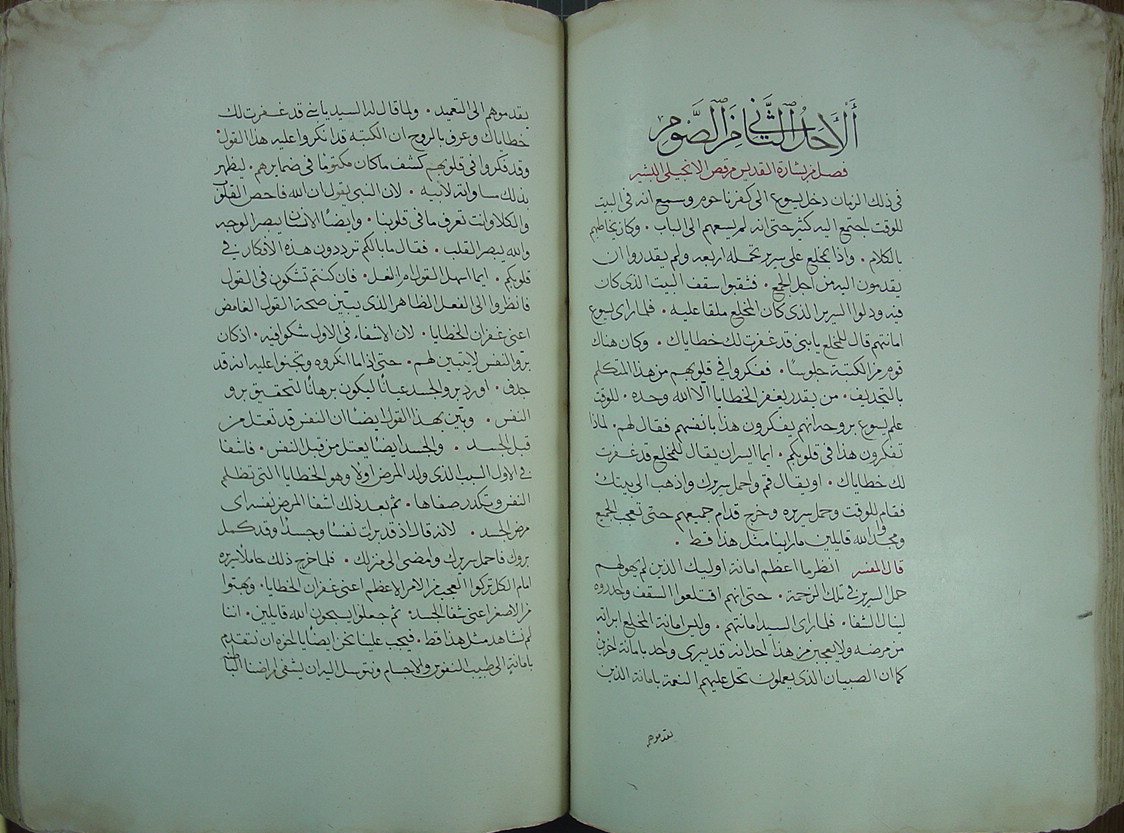 الأحد الثاني من الصوم
فصل من بشارة القديس مرقص الانجيلي البشير
في ذلك الزمان دخل يسوع الى كفرناحوم وسمع انه في البيت
للوقت اجتمع اليه كثير حتى انه لم يسعهم الى الباب • وكان يخاطبهم
بالكلام • واذا بمخلع على سرير تحمله اربعه ولم يقدروا ان
يقدمون اليه من اجل الجمع • فثقبوا سقف البيت الذي كان
فيه ودلوا السرير الذي كان المخلع ملقا عليه • فلما راى يسوع
امانتهم قال للمخلع يا بني قد غفرت لك خطاياك • وكان هناك
قوم من الكتبة جلوسا • ففكروا في قلوبهم من هذا المتكلم
بالتجديف • من يقدر يغفر الخطايا الا الله وحده • للوقت
علم يسوع بروحه انهم يفكرون هذا بانفسهم فقال لهم • لماذا
تفكرون هذا في قلوبكم • ايما ايسر ان يقال للمخلع قد غفرت
لك خطاياك • او يقال قم واحمل سريرك واذهب الى بيتك
فقام للوقت وحمل سريره وخرج قدام جميعهم حتى تعجب الجميع
ومجدوا الله قايلين ما راينا مثل هذا قط •
قال المفسر انظر ما اعظم امانة اوليك الذين لم يهولهم
حمل السرير في تلك الزحمة • حتى انهم اقتلعوا السقف وحدروه
لينال الشفا • فلما راى السيد امانتهم • وليس امانة المخلع ابراته
من مرضه ولا يعجبن من هذا احد انه قد يبرى وحد بامانة اخرين
كما ان الصبيان الذي يعملون تحل عليهم النعمة بامانة الذين
يقدموهم
يقدموهم الى التعميد • ولما قال له السيد يا بني قد غفرت لك
خطاياك وعرف بالروح ان الكتبه قد انكروا عليه هذا القول
وقد فكروا في قلوبهم كشف ما كان مكتوما في ضمايرهم • ليظهر
بذلك مساواته لابيه • لان النبي يقول ان الله فاحص القلوب
والكلا وانت تعرف ما في قلوبنا • وايضا الانسان يبصر الوجه
والله يبصر القلب • فقال ما بالكم ترددون هذه الافكار في
قلوبكم • ايما اسهل القول ام الفعل • فان كنتم تشكون في القول
فانظروا الى الفعل الظاهر الذي يبين صحة القول الغامض
اعني غفران الخطايا • لان الاشفاء في الاول شكوا فيه • اذ كان
برو النفس لا يتبين لهم • حتى اذا ما انكروه وتجنوا عليه انه قد
جدف • اورد برو الجسد عيانا ليكون برهانا لتحقيق برو
النفس • وبين بهذا القول ايضا ان النفس قد تعتل من
قبل الجسد • والجسد ايضا يعتل من قبل النفس • فاشفا
في الاول السبب الذي ولد المرض اولا وهو الخطايا التي تظلم
النفس وتكدر صفاها • ثم بعد ذلك اشفا المرض نفسه اي
مرض الجسد • لانه قال اذ قد بريت نفسا وجسدا وقد كمل
بروك فاحمل سريرك وامضي الى منزلك • فلما خرج ذلك حاملا سريره
امام الكل تركوا العجب من الامر الاعظم اعني غفران الخطايا • وبهتوا
من الاصغر اعني شفا الجسد • ثم جعلوا يسبحون الله قايلين • اننا
لم نشاهد مثل هذا قط • فيجب علينا نحن ايضا يا اخوه ان نتقدم
بامانة الى طبيب النفوس والاجسام ونتوسل اليه ان يشفي امراضنا الباطنه